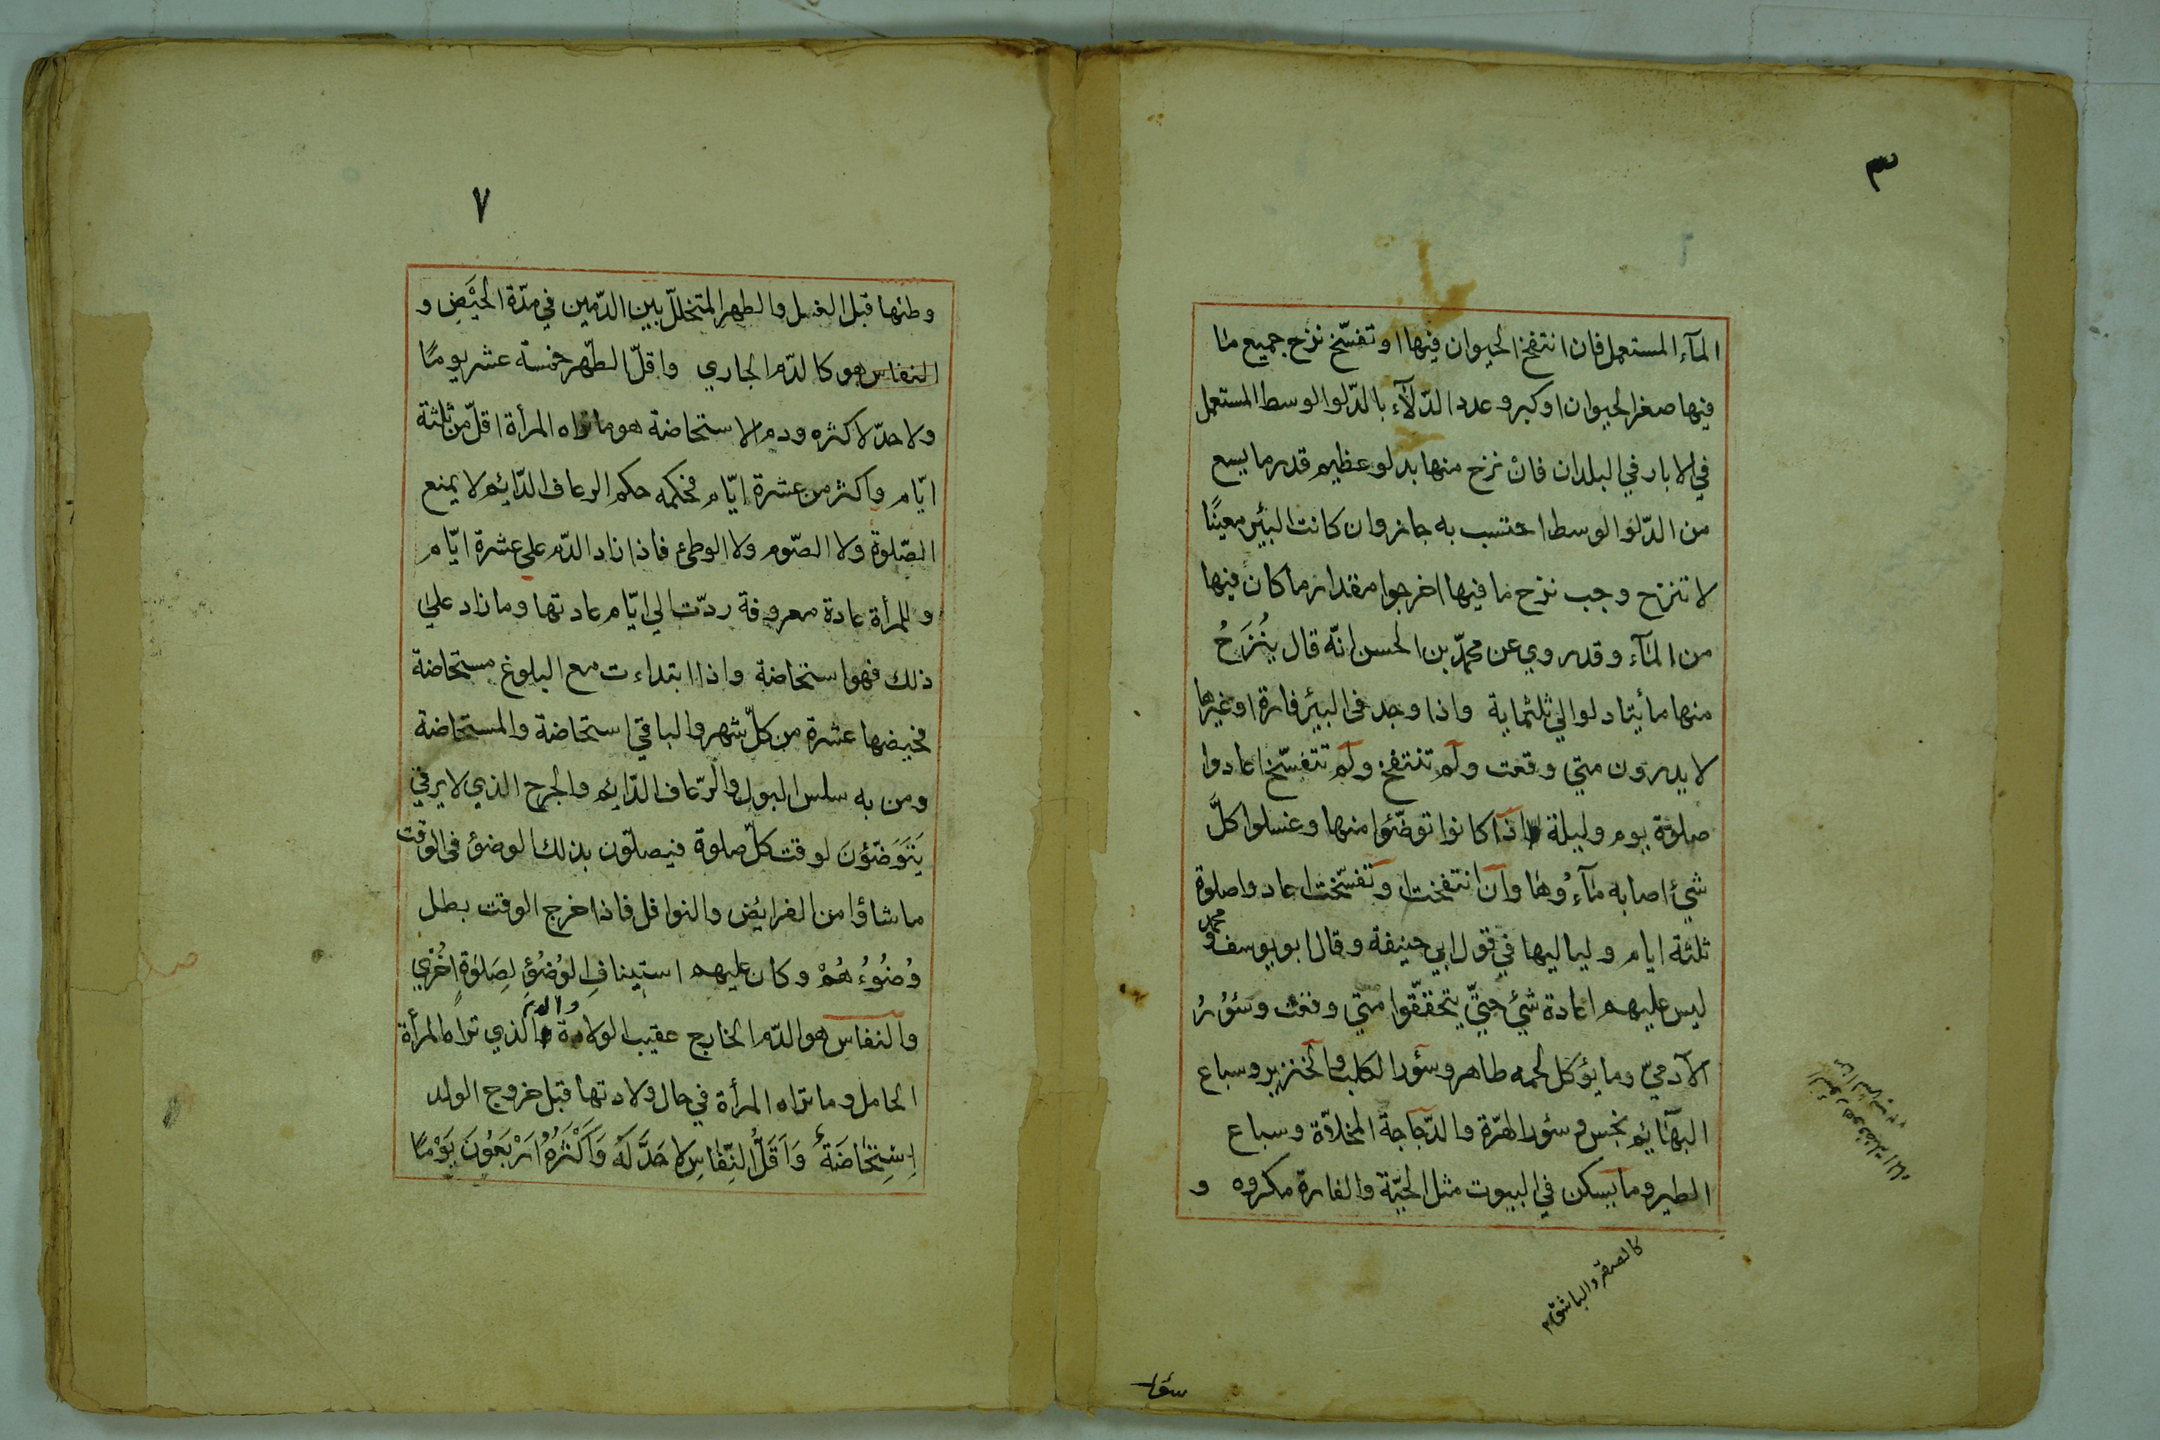 ٣
المآء المستعمل فان انتفخ الحيوان فيها او تفسّخ نزح جميع ما
فيها صغر الحيوان او كبر وعدد الدّلآء بالدّلو الوسط المستعمل
في الابار في البلدان فانْ نزح منها بدلو عظيم قدر ما يسع
من الدّلو الوسط احتسب به جاز وان كانت البئير معينًا
لا تنزح وجب نزح ما فيها اخرجوا مقدار ما كان فيها
من المآء وقد روي عن محمّد بن الحسن انّه قال يُنْزَحُ
منها مأيتا دلو الي ثلثماية واذا وجد في البيئر فارة او غيرها
لا يدرون متي وقعت ولم تنتفخ ولم تتفسّخ اعادوا
صلوة يوم وليلة اذا كانوا توضّئوا منها وغسلوا كلّ
شيئ اصابه مآءُوها وان انتفخت او تفسّخت اعادوا صلوة
ثلثة ايام ولياليها في قول ابي حنيفة وقال ابو يوسف و
محمد
ليس عليهم اعادة شيئ حتّي يتحقّقوا متي وقعت وسُؤرُ
الآدميّ وما يؤكل لحمه طاهر وسؤر الكلب والخنزير وسباع
البهآئم نجس و سؤر الهرّة والدّجاجة المخلاّة وسباع
الطير وما يسكن في البيوت مثل الحيّة والفارة مكروه و
كالصقر والباشق
سؤر
٧
وطئها قبل الغسل والطهر المتخللّ بين الدّمين في مدّة الحَيْضِ و
النفاس هو كالدّم الجاري واقلّ الطّهر خمسة عشر يومًا
ولا حدّ لاكثره ودم الاستحاضة هو ما تراه المرأة اقلّ من ثلثة
ايّام واكثر من عشرة ايّام فحكمه حكم الرعاف الدّائم لا يمنع
الصّلوة ولا الصّوم ولا الوطئ فاذا زاد الدّم علي عشرة ايّام
وللمرأة عادة معروفة ردّت الي ايّام عادتها وما زاد علي
ذلك فهو استحاضة واذا ابتداءت مع البلوغ مستحاضة
فحيضها عشرة من كلّ شهر والباقي استحاضة والمستحاضة
ومن به سلس البول والرّعاف الدّائم والجرح الذي لا يرقي
يَتَوَضّؤنَ لوقت كلّ صلوة فيصلّون بذلك الوضؤ في الوقت
ما شاؤا من الفرايض والنوافل فاذا خرج الوقت بطل
وُضُوُءُ هُمْ وكان عليهم استيناف الوُضُؤِ لِصَلوٰةٍ اُخْري
والنفاس هو الدّم الخارج عقيب الولادة والدّم الذي تراه المرأة
الحامل وما تراه المرأة في حال ولادتها قبل خروج الولد
اِسْتِحَاضَةٌ وَاَقَلُّ النِّفَاسِ لَا حَدَّ لَهُ وَاَكْثَرُهُ اَرْبَعُونَ يَوْمًا